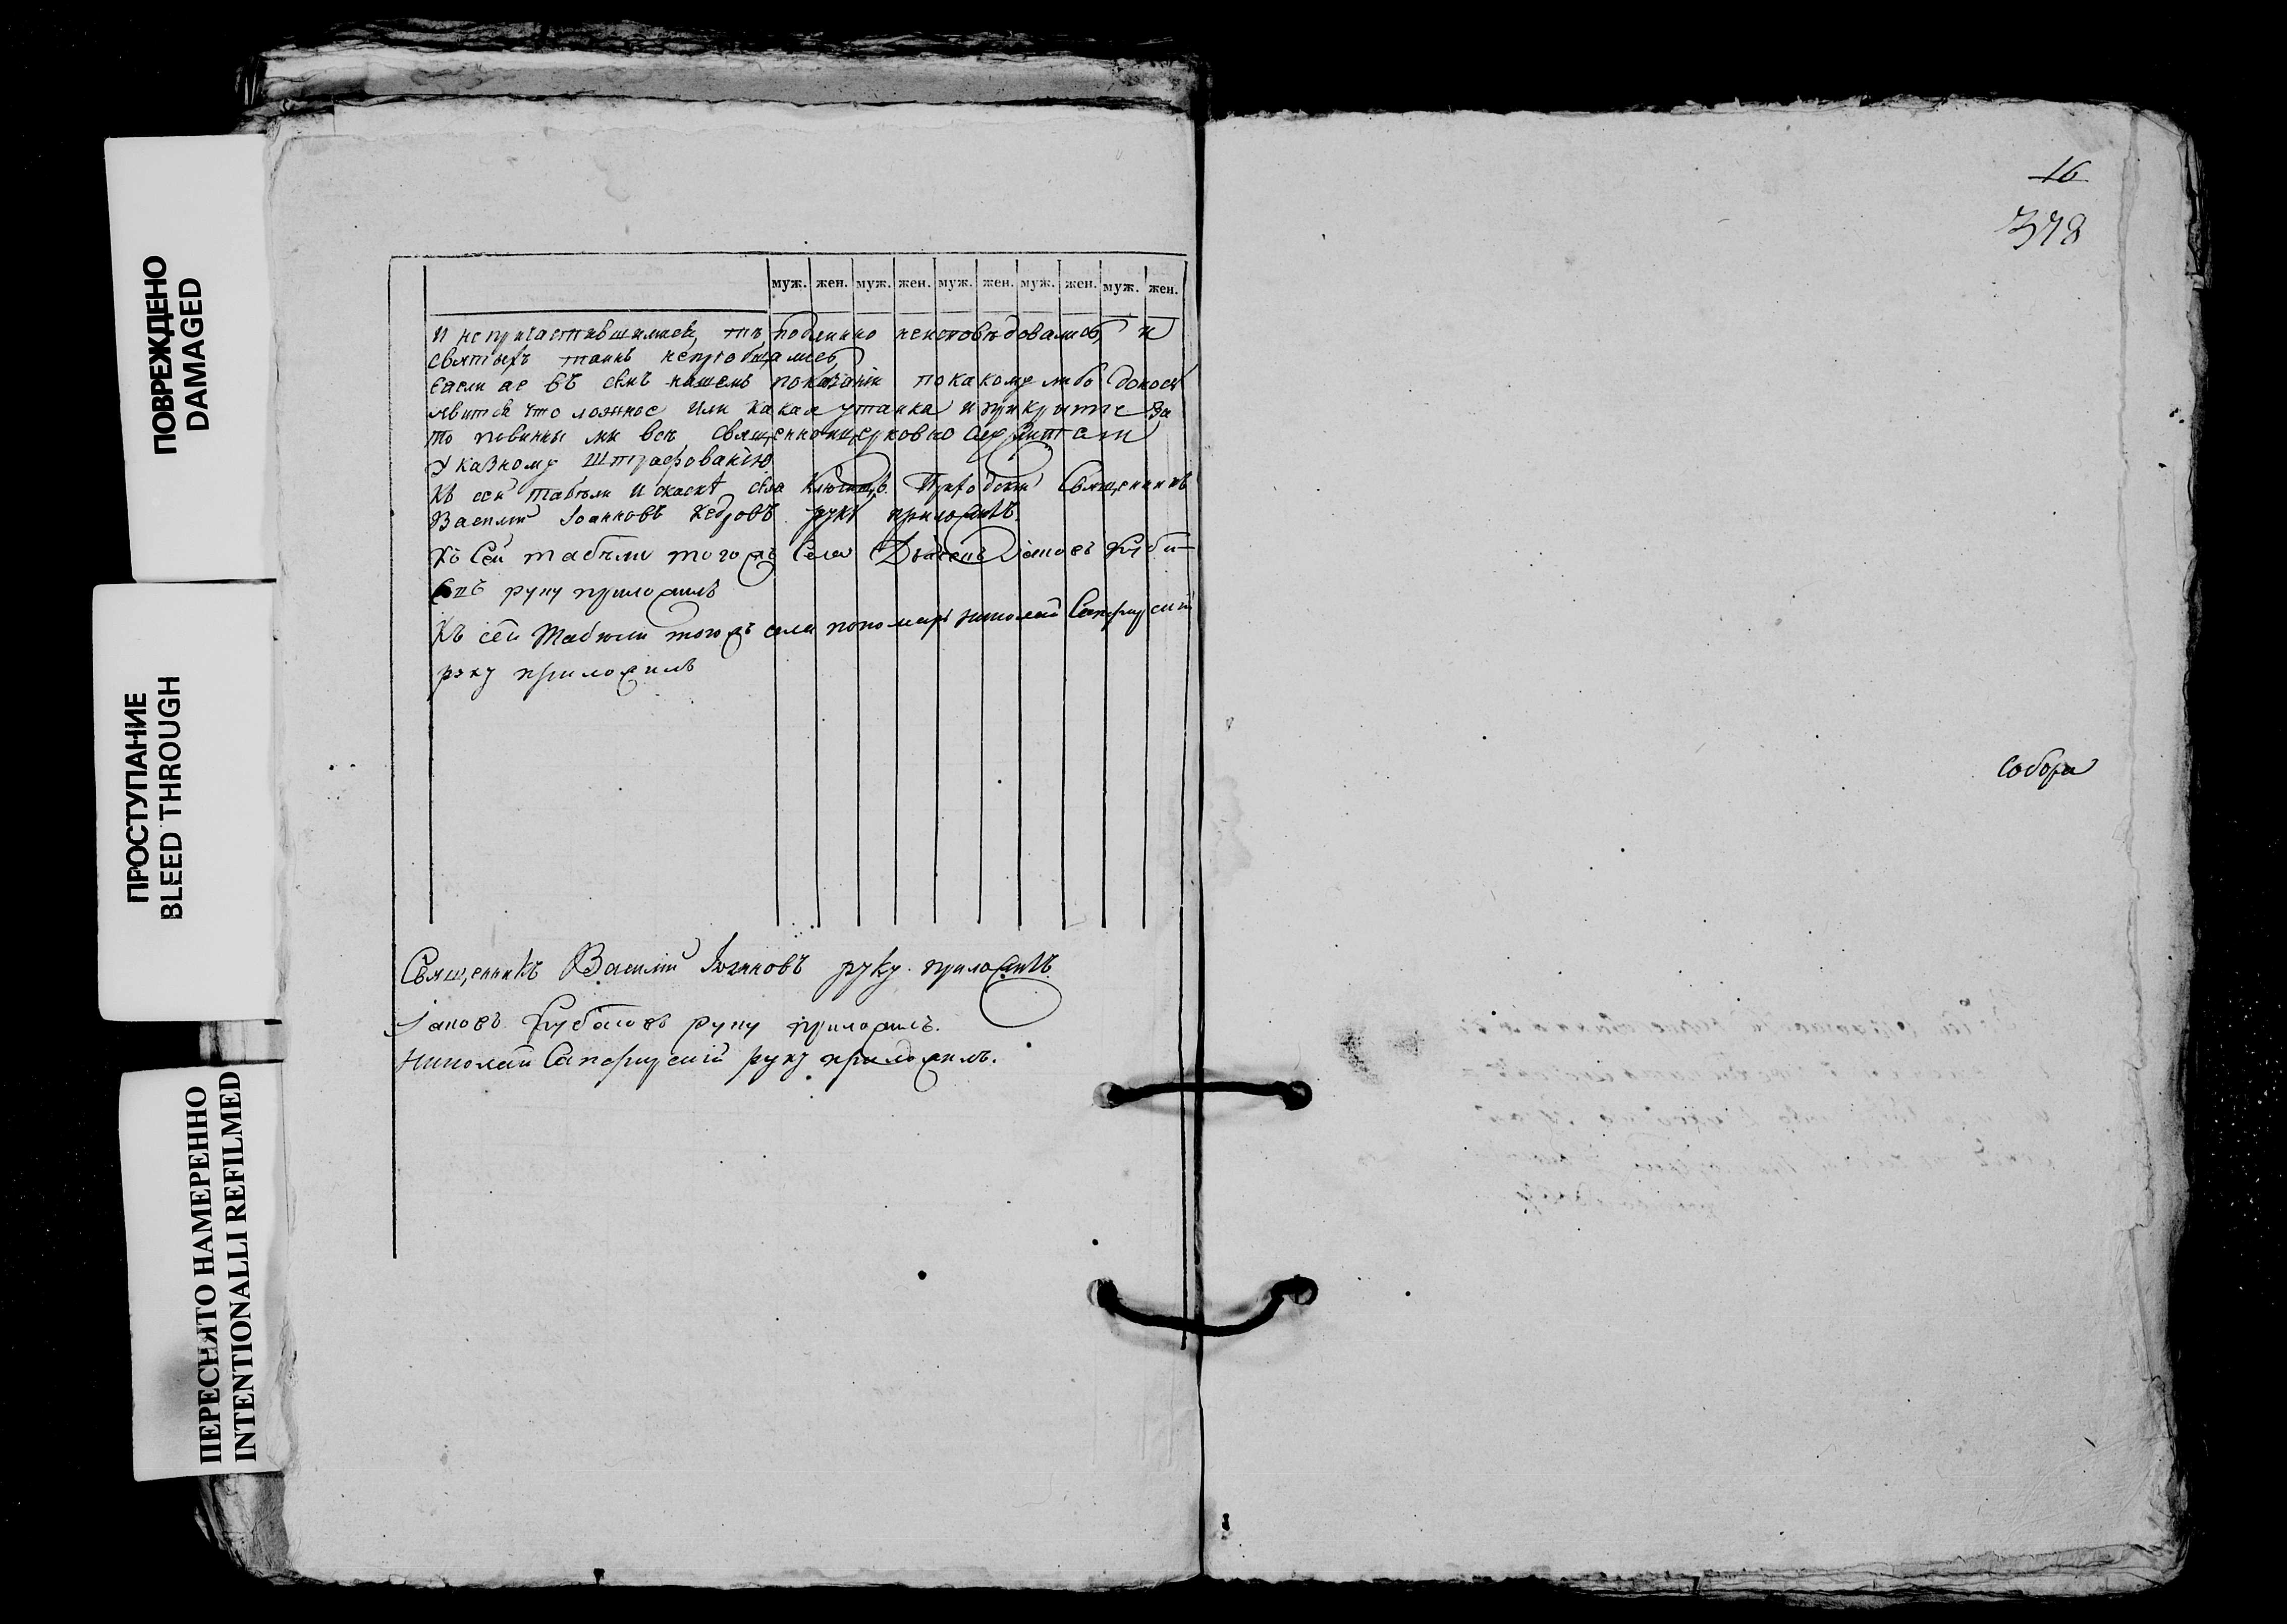 ПОВРЕЖДЕНО
DAMAGED
ПРОСТУПАНИЕ
BLEED THROUGH
ПЕРЕСНЯТО НАМЕРЕННО
INTENTIONALLI REFILMED
муж. жен. муж. жен. муж. жен. муж. жен. муж. жен.
И непричастившимися, тѣ подлинно неисповѣдовались, и
святыхъ таинъ непріобщались,
Ежели же въ семъ нашемъ показаніи покакому либо доносу
явится что ложное или какая утайка и прикрытіе за
то повинны мы всѣ священноицерковно служители
Указному штрафованію
Къ сей табели и скаскѣ села Приходскій Священникъ
Василій Іоанновъ Кедровъ руку приложилъ.
Къ Сей табели тогожъ Села Дьячекъ Іаковъ
руку приложилъ
Къ сей Табели тогожъ села пономарь Николай
руку приложилъ
Священникъ Василій Іоанновъ руку приложилъ
Іаковъ руку приложилъ.
Николай руку приложилъ.
16
378
Собора